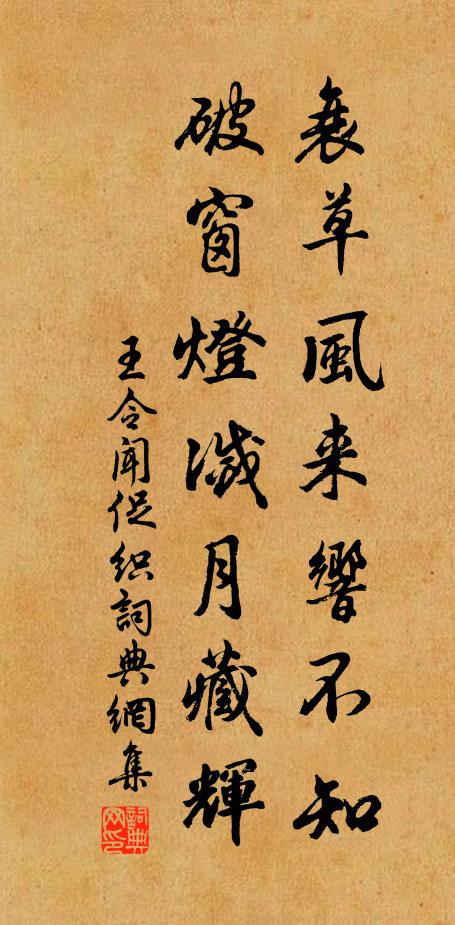 衰草風来響不知
破窗燈滅月藏輝
王令聞促織詞典網集
詞典网印